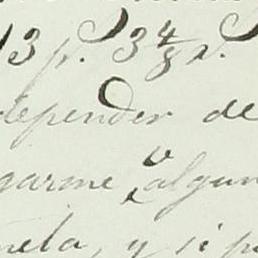 13 p.s 3 4/8 r.s
depender de
garme, algun
neta, y si p